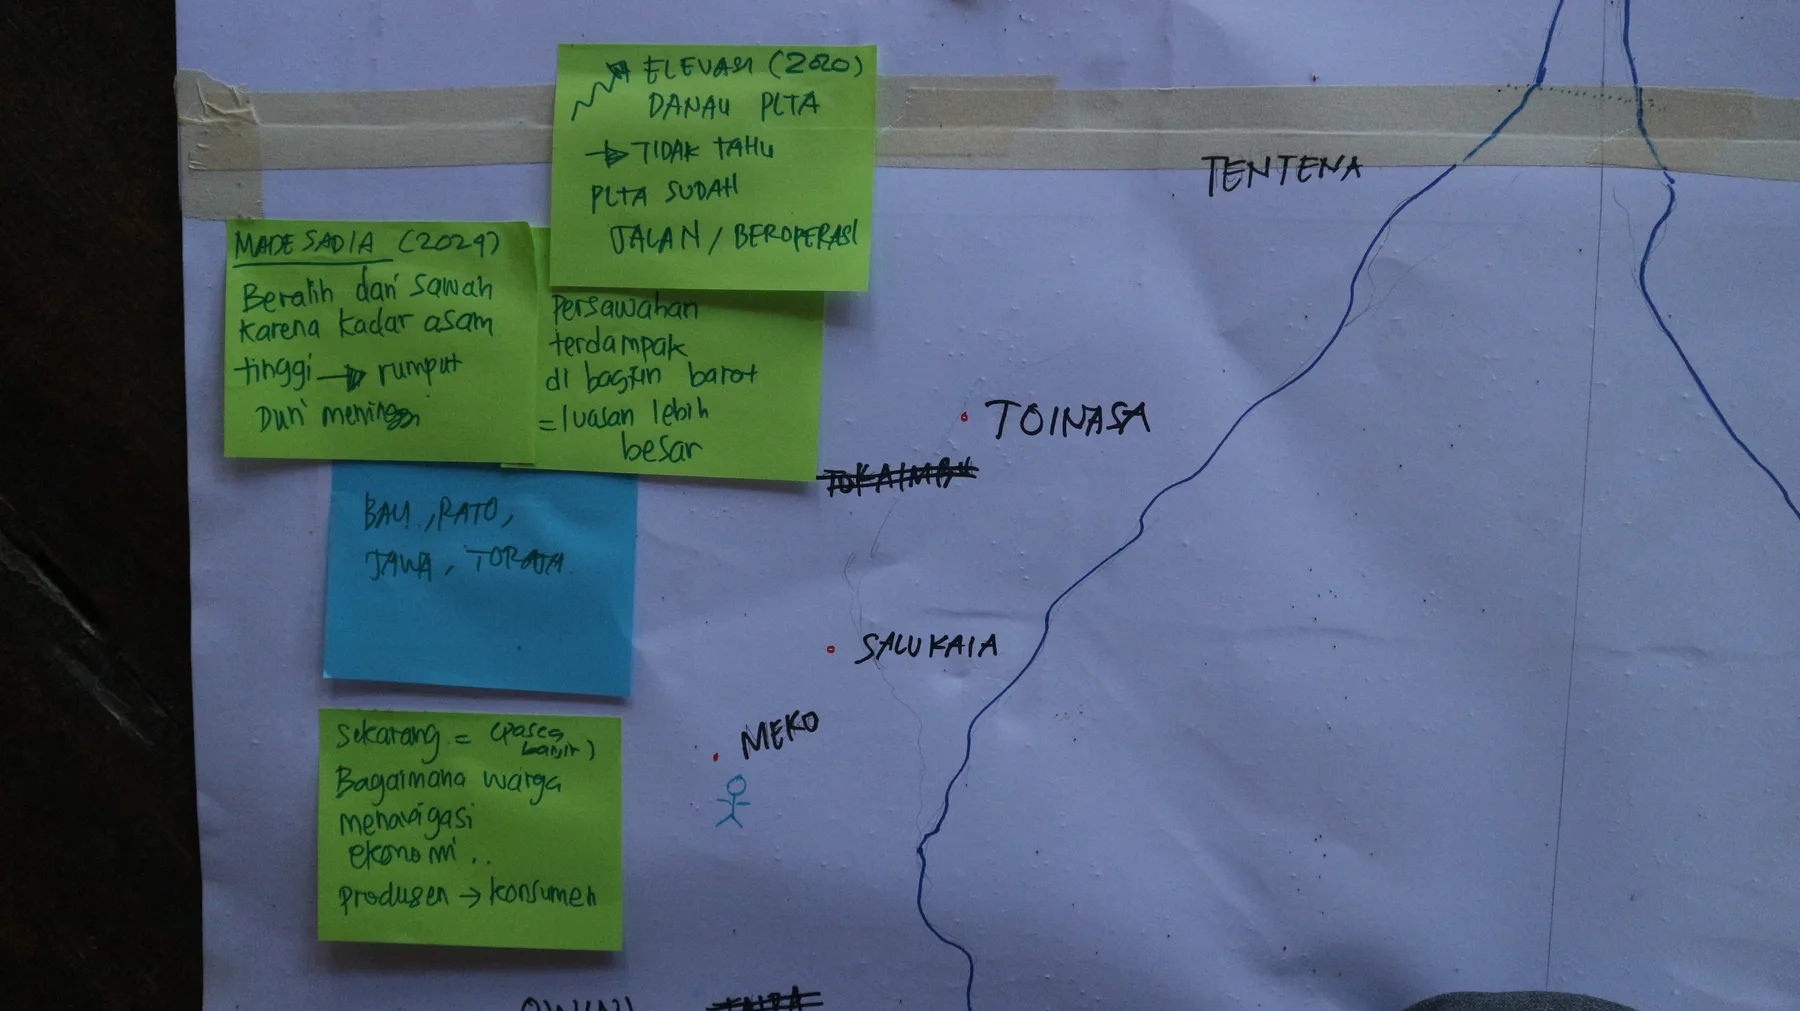 ELEVASI (2020)
DANAU PLTA
→ TIDAK TAHU
PLTA SUDAH
JALAN / BEROPERASI
MADE SADIA (2024)
Beralih dari sawah
karena kadar asam
tinggi → rumput
Duri meninggi
Persawahan
terdampak
di bagian barat
= luasan lebih
besar
BALI, RATO,
JAWA, TORAJA.
Sekarang = (pasca
banjir)
Bagaimana warga
menavigasi
ekonomi..
produsen → konsumen
TENTENA
TOINASA
SALUKAIA
MEKO